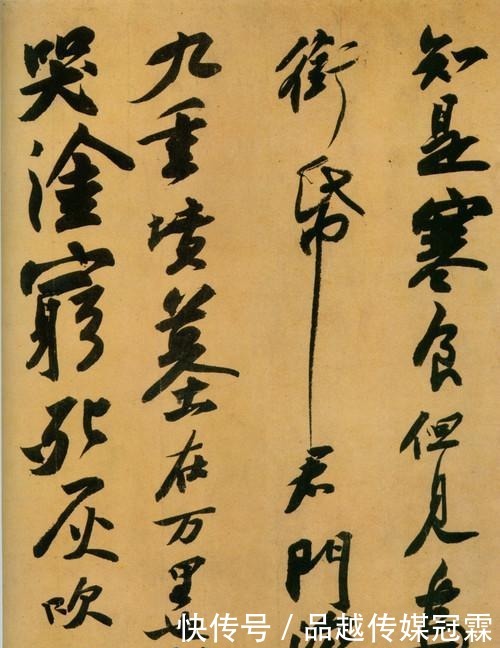 知是寒食但見
銜帋君門
九重墳墓在万里
哭塗窮死灰吹
快传号 / 品越传媒冠霖